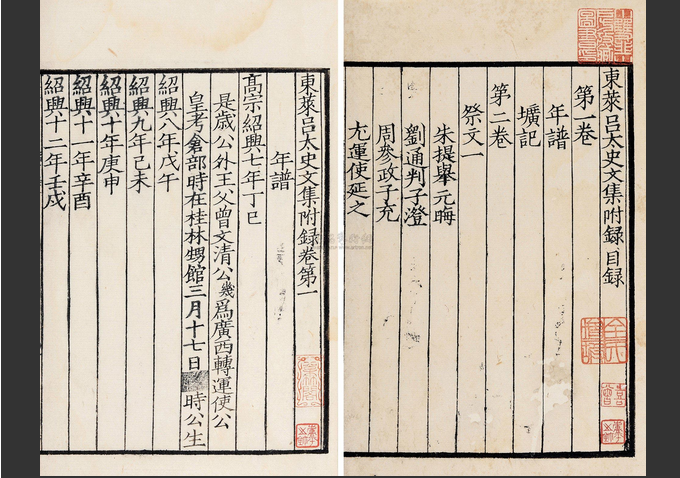 東萊呂太史文集附録目録
第一卷
年譜
壙記
第二卷
祭文一
朱提舉元晦
劉通判子澄
周參政子充
尤運使延之
東萊呂太史文集附録卷第一
年譜
髙宗紹興七年丁巳
是歲公外王父曾文清公幾爲廣西轉運使公
皇考倉部時在桂林甥館三月十七日 時公生
紹興八年戊午
紹興九年己未
紹興十年庚申
紹興十一年辛酉
紹興十二年壬戌